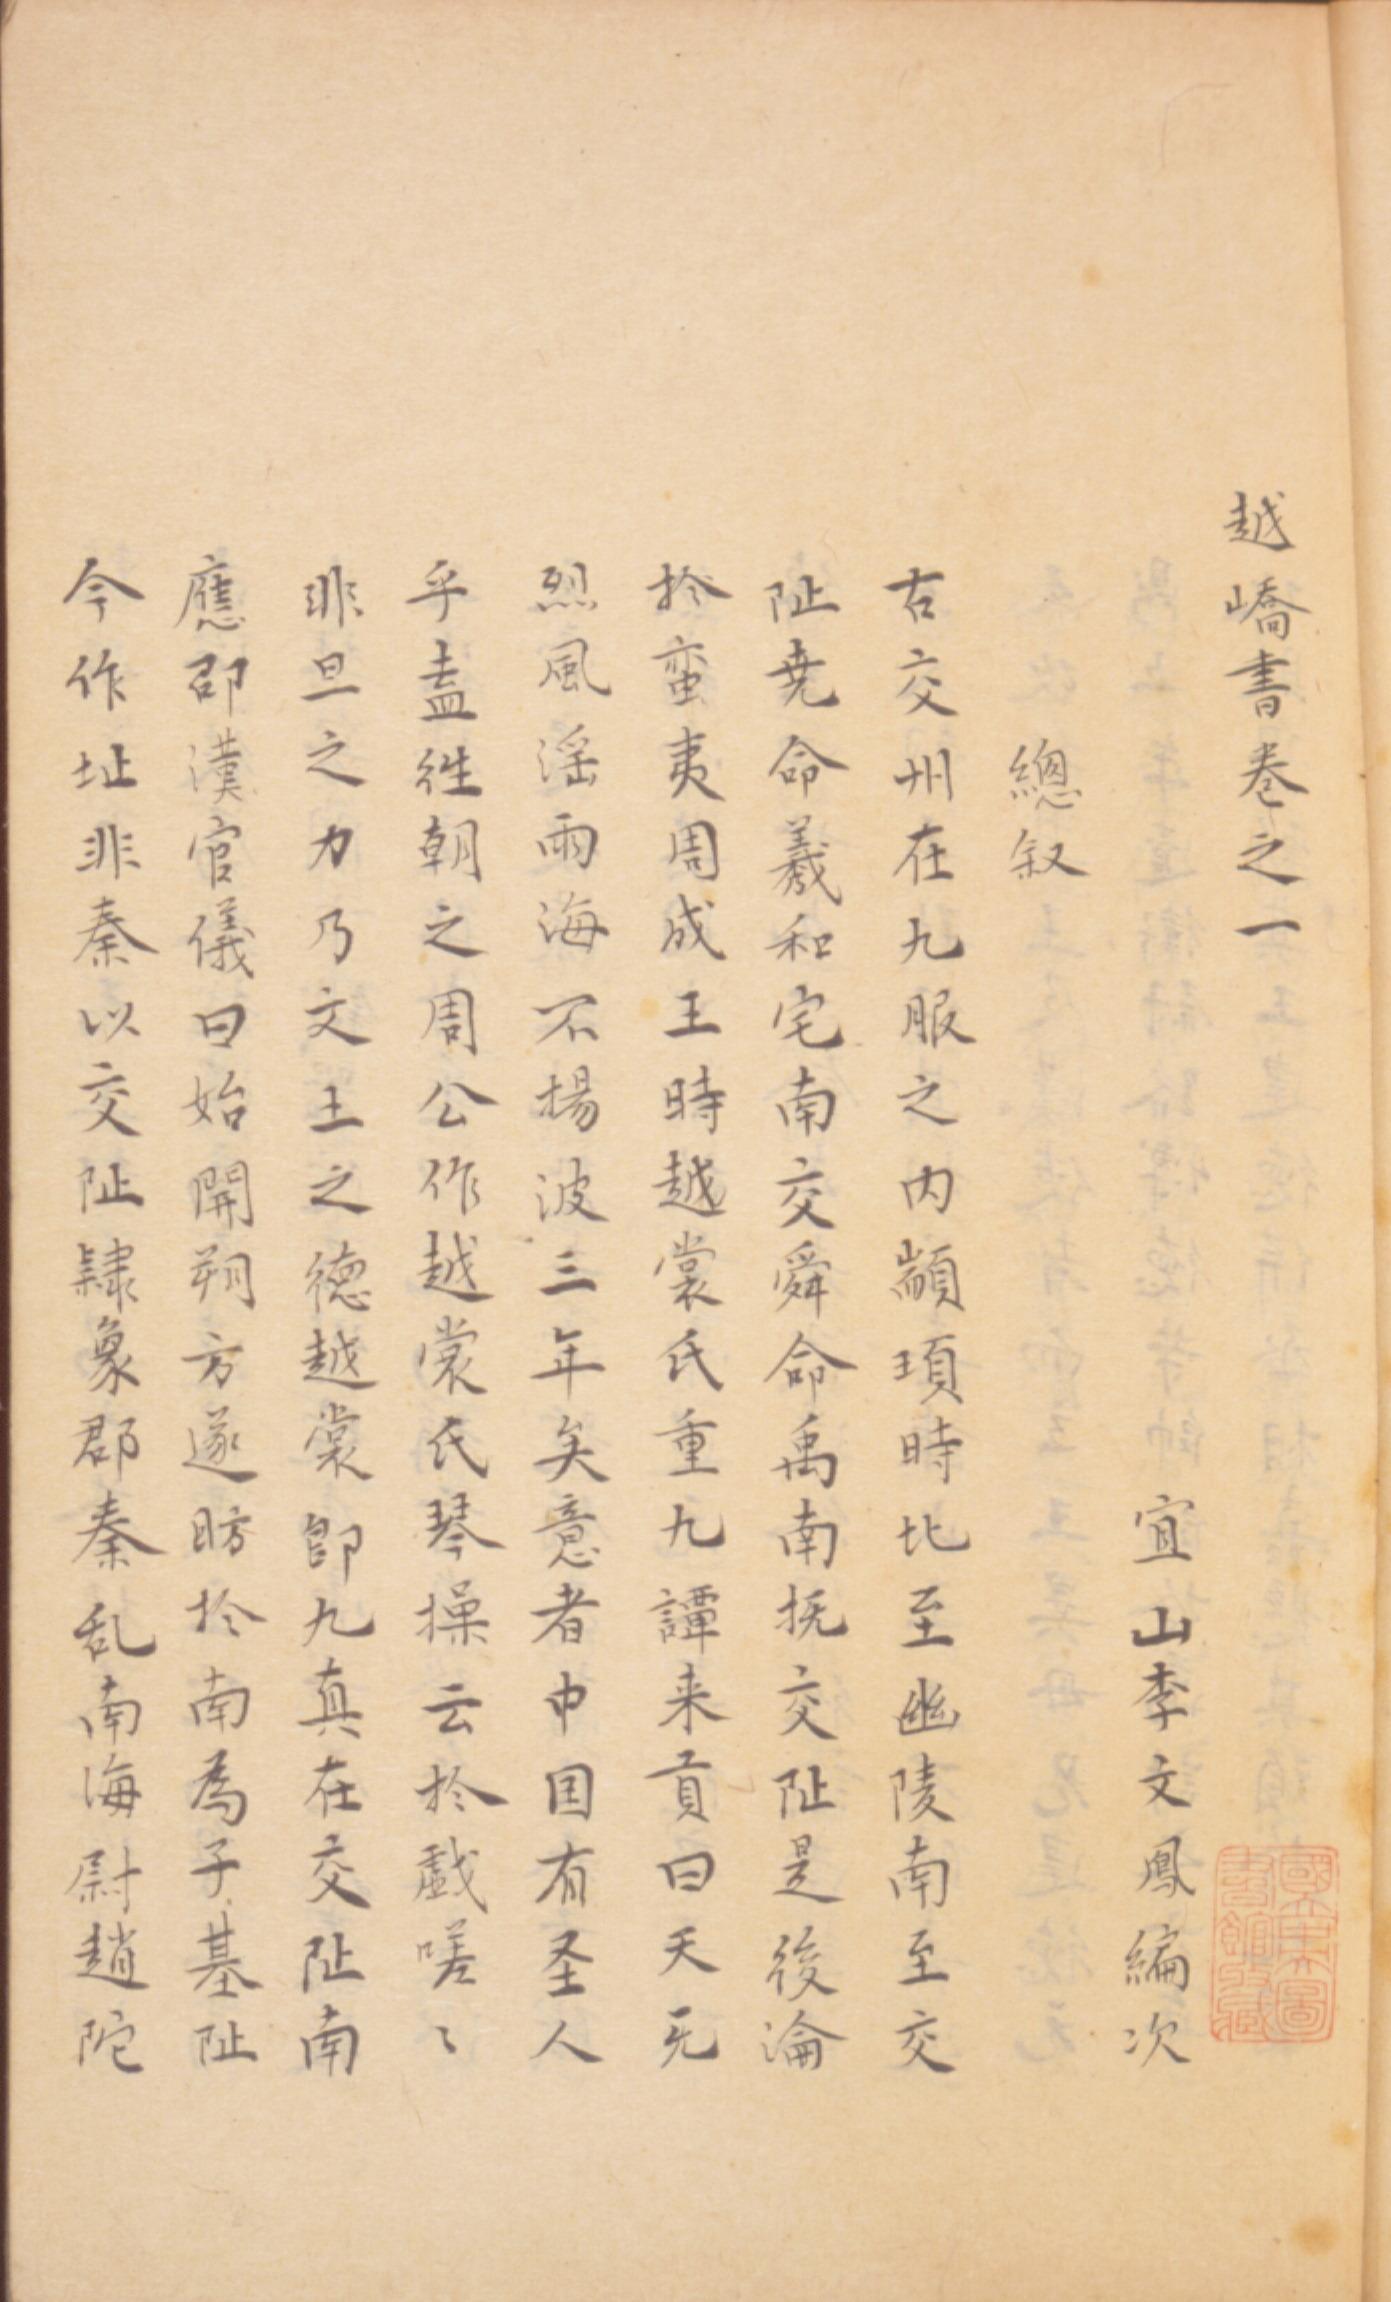 越嶠書卷之一
宜山李文鳳編次
總叙
古交州在九服之内顓頊時北至幽陵南至交
阯堯命羲和宅南交舜命禹南抚交阯是後淪
扵蛮夷周成王時越裳氏重九譚来貢曰天无
烈風滛雨海不揚波三年矣意者中国有圣人
乎盍徃朝之周公作越裳氏琴操云扵戯嗟〻
非旦之力乃文王之德越裳即九真在交阯南
應邵漢官儀曰始開朔方遂昉扵南為子基阯
今作址非秦以交阯隸象郡秦乱南海尉趙陀
國立中央圖書館收藏